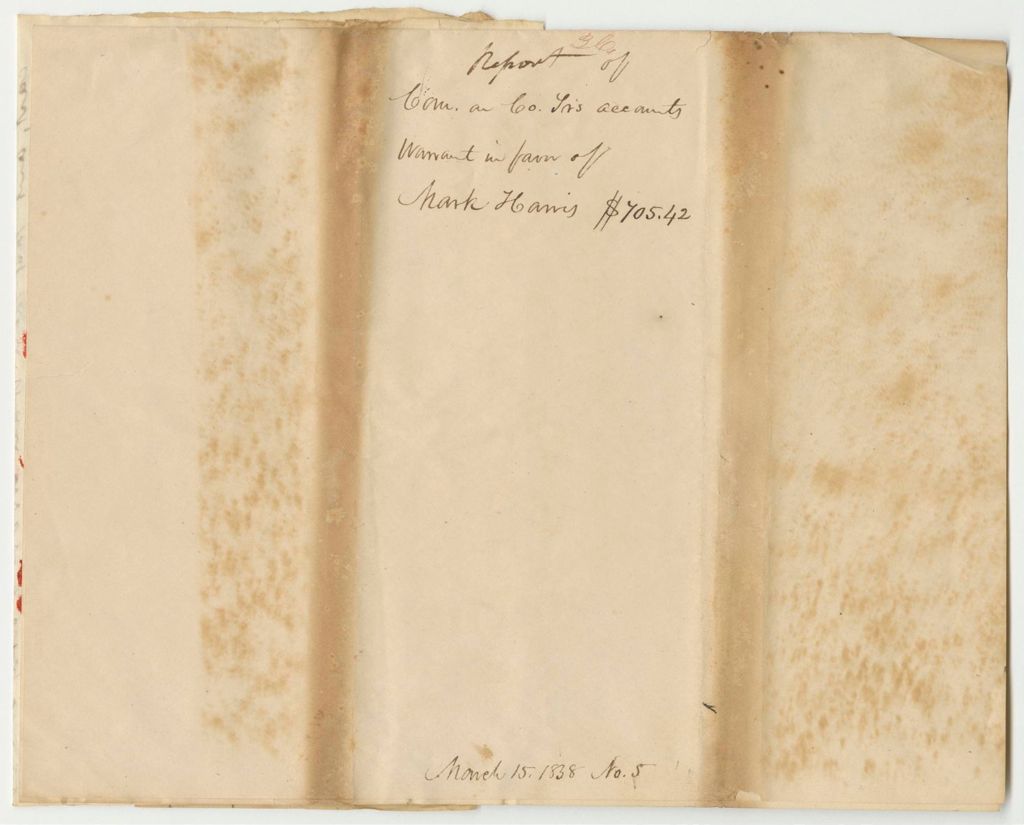 Report of
Com. on Co. Trs accounts
Warrant in favor of
Mark Harris $705.42
March 15. 1838 No. 5